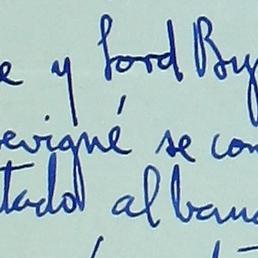 e y Lord By
evigné se com
tado al banc